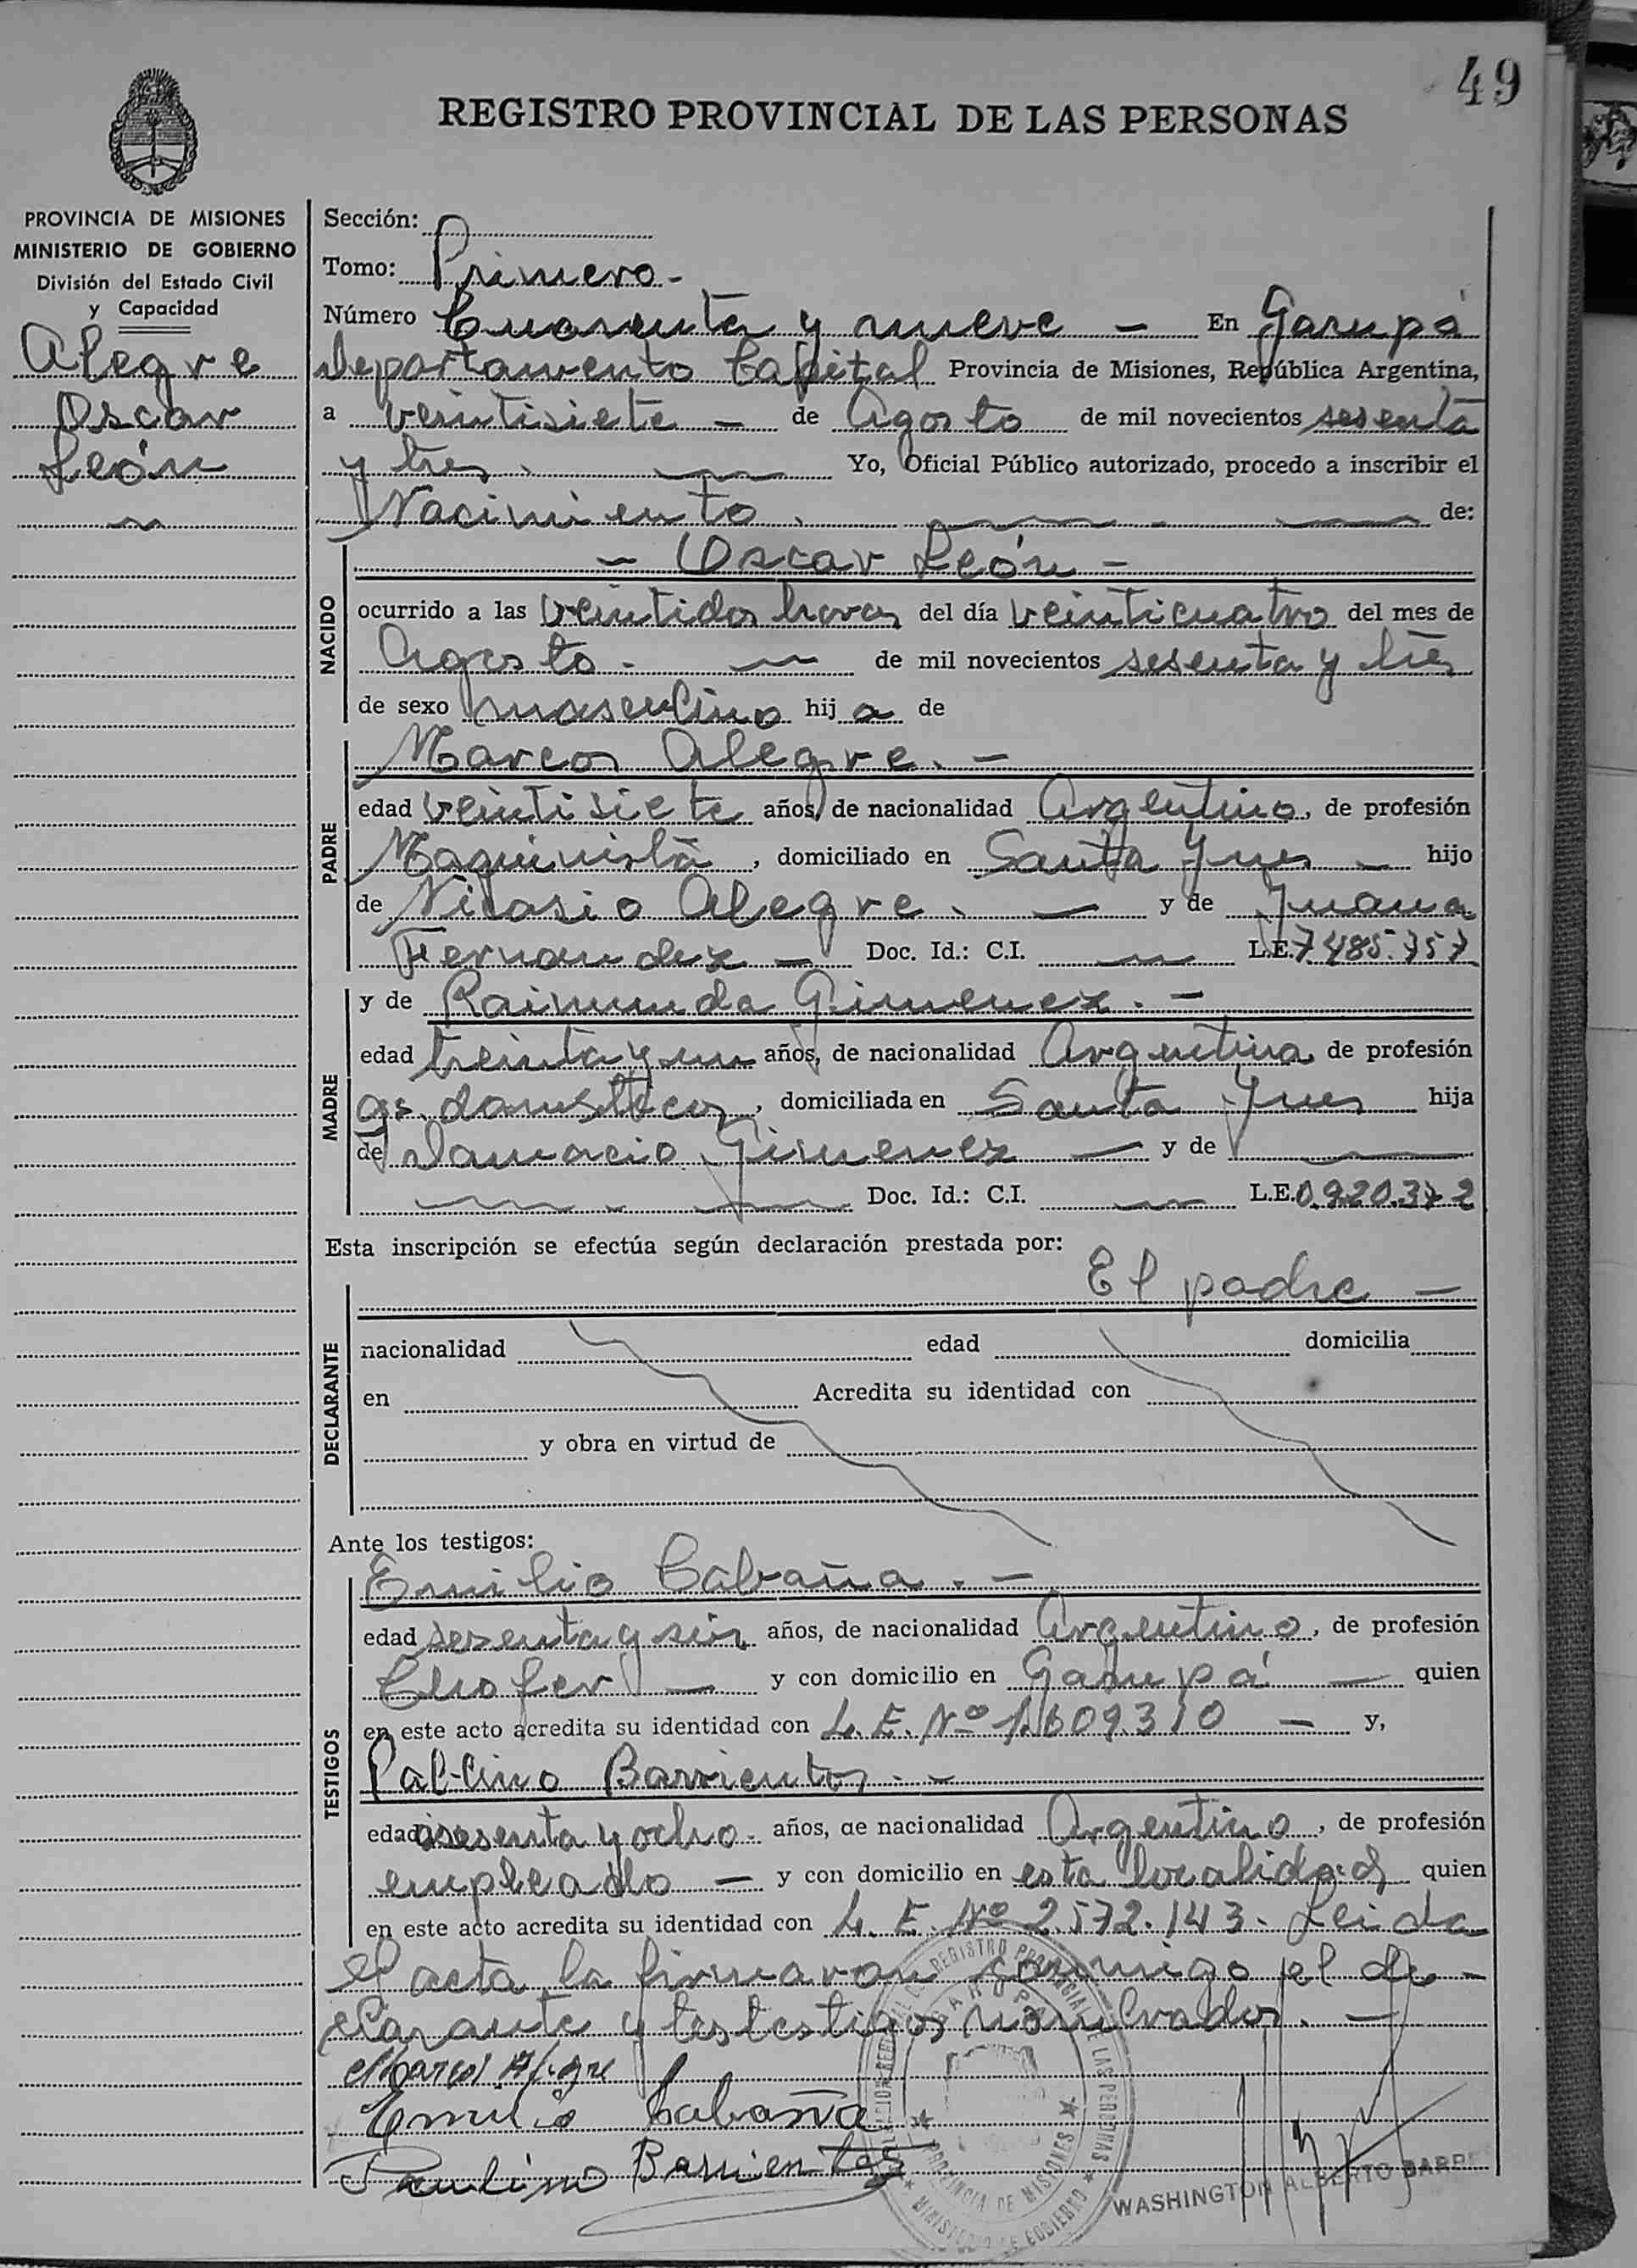 49
REGISTRO PROVINCIAL DE LAS PERSONAS
PROVINCIA DE MISIONES
MINISTERIO DE GOBIERNO
División del Estado Civil
y Capacidad
Alegre
Oscar
León
Sección:
Tomo: Primero -
Número Cuarenta y nueve - En Garupá
Departamento Capital Provincia de Misiones, República Argentina,
a veintisiete - de Agosto de mil novecientos sesenta
y tres. Yo, Oficial Público autorizado, procedo a inscribir el
Nacimiento. de:
NACIDO
- Oscar León -
ocurrido a las veintidos horas del día veinticuatro del mes de
Agosto - de mil novecientos sesenta y tres
de sexo masculino hij a de
PADRE
Marcos Alegre. -
edad veintisiete años, de nacionalidad Argentino, de profesión
Maquinista, domiciliado en Santa Ynes - hijo
de Nicasio Alegre. - y de Juana
Fernandez - Doc. Id.: C.I. L.E. 7485.757
MADRE
y de Raimunda Gimenez. -
edad treinta y un años, de nacionalidad Argentina de profesión
qs. domesticos, domiciliada en Santa Ynes hija
de Damacio Gimenez - y de
Doc. Id.: C.I. L.E. 0.920.372
Esta inscripción se efectúa según declaración prestada por:
El padre -
DECLARANTE
nacionalidad edad domicilia
en Acredita su identidad con
y obra en virtud de
Ante los testigos:
TESTIGOS
Emilio Cabaña. -
edad sesenta y seis años, de nacionalidad Argentino, de profesión
Chofer - y con domicilio en Garupá - quien
en este acto acredita su identidad con L. E. Nº 1.609.310 - y,
Barrientos. -
edad sesenta y ocho. años, de nacionalidad Argentino, de profesión
empleado - y con domicilio en esta localidad quien
en este acto acredita su identidad con L. E. Nº 2.572.143. Leida
el acta la firmaron conmigo el de-
clarante y testestigos nombrados. -
Marcos Alegre
Emilio Cabaña
Paulino Barrientos
REGISTRO PROVINCIAL DE LAS PERSONAS
GARUPA
PROVINCIA DE MISIONES
MINISTERIO DE GOBIERNO
WASHINGTON ALBERTO